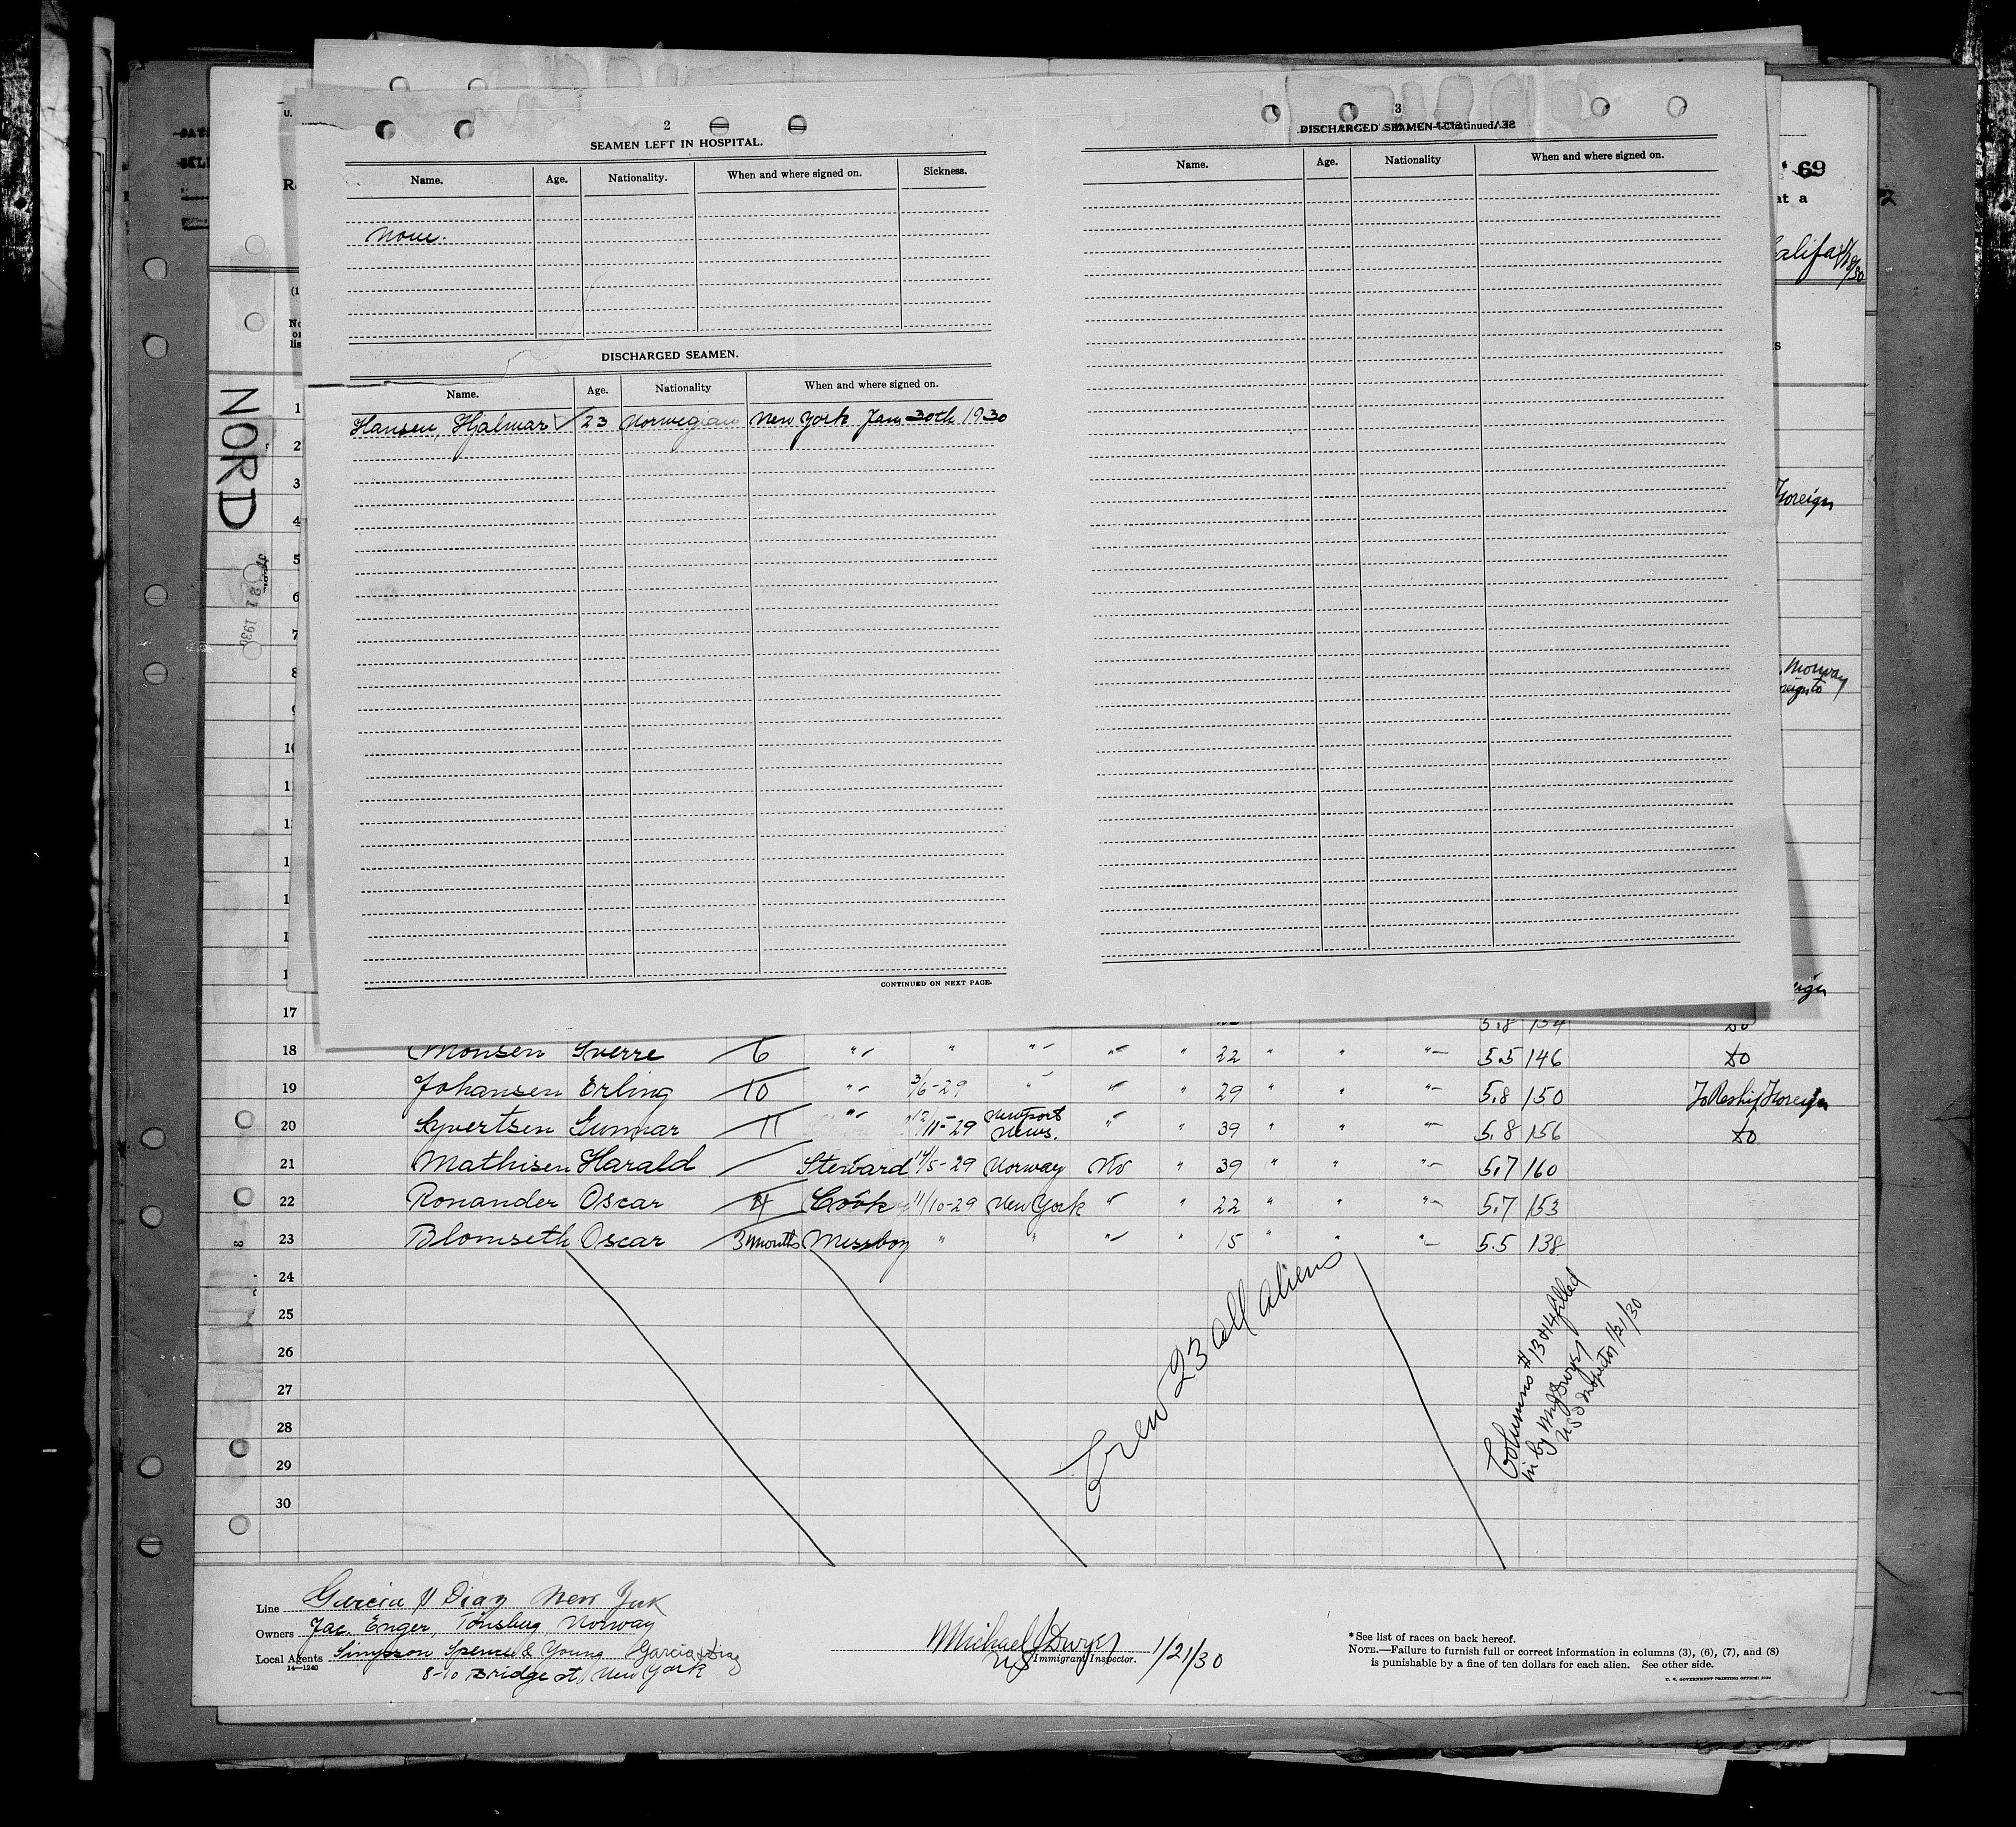 2
SEAMEN LEFT IN HOSPITAL.
Name. Age. Nationality. When and where signed on. Sickness.
None.
DISCHARGED SEAMEN.
Name. Age. Nationality When and where signed on.
Hansen, Hjalmar 23 Norwegian New York Jan 30th 1930
CONTINUED ON NEXT PAGE.
3
DISCHARGED SEAMEN—Continued.
Name. Age. Nationality When and where signed on.
69
at a
NORD
1
2
3 Foreign
4
5
6
7
8 Norway
10
17 5.8 154 do
18 Monsen Sverre 6 " " " " " 22 " " " 5.5 146 do
19 Johansen Erling 10 " 3/6-29 " " " 29 " " " 5.8 150 To Reship Foreign
20 Syvertsen Gunnar 11 " 12/11-29 Newport News. " " 39 " " " 5.8 156 do
21 Mathisen Harald Steward 14/5-29 Norway No " 39 " " " 5.7 160
22 Ronander Oscar 4 Cook 11/10-29 New York " " 22 " " " 5.7 153
23 Blomseth Oscar 3 months Messboy " " " " 15 " " " 5.5 138
24
25
26
27
28
29
30
Crew 23 all aliens
Columns #13+14 filled
in by M J Dwyer
US Inspector 1/21/30
Line Garcia & Diaz New York
Owners Jac. Enger, Tönsberg Norway
Local Agents Simpson Spence & Young Garcia & Diaz
14—1240
8-10 Bridge st, New York
Michael J Dwyer 1/21/30
US Immigrant Inspector.
*See list of races on back hereof.
NOTE.—Failure to furnish full or correct information in columns (3), (6), (7), and (8)
is punishable by a fine of ten dollars for each alien. See other side.
U. S. GOVERNMENT PRINTING OFFICE: 1929